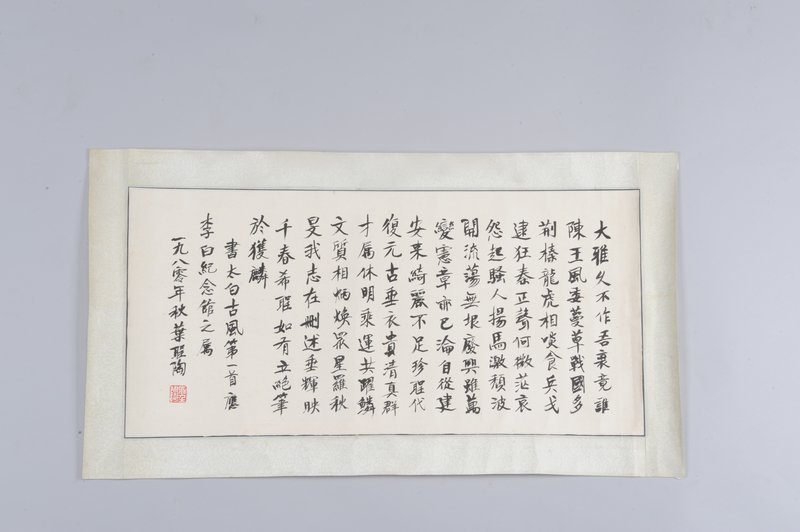 大雅久不作吾衰竟誰
陳王風委蔓草戰國多
荆榛龍虎相啖食兵戈
逮狂秦正聲何微茫哀
怨起騷人揚馬激頹波
開流蕩無垠廢興雖萬
變憲章亦已淪自從建
安來綺麗不足珍聖代
復元古垂衣貴清真群
才属休明乘運共躍鱗
文質相炳煥眾星羅秋
旻我志在刪述垂輝映
千春希聖如有立絕筆
於獲麟
書太白古風第一首應
李白紀念館之屬
一九八零年秋葉聖陶